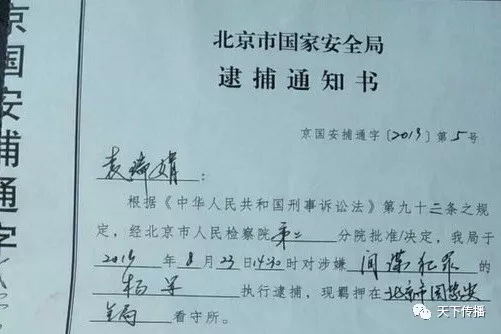 京国安捕通字
北京市国家安全局
逮捕通知书
京国安捕通字〔2019〕第5号
袁瑞娟：
根据《中华人民共和国刑事诉讼法》第九十三条之规
定，经北京市人民检察院第二分院批准/决定，我局于
2019年8月23日14:30时对涉嫌间谍犯罪的
杨军执行逮捕，现羁押在北京市国家安
全局看守所。
天下传播